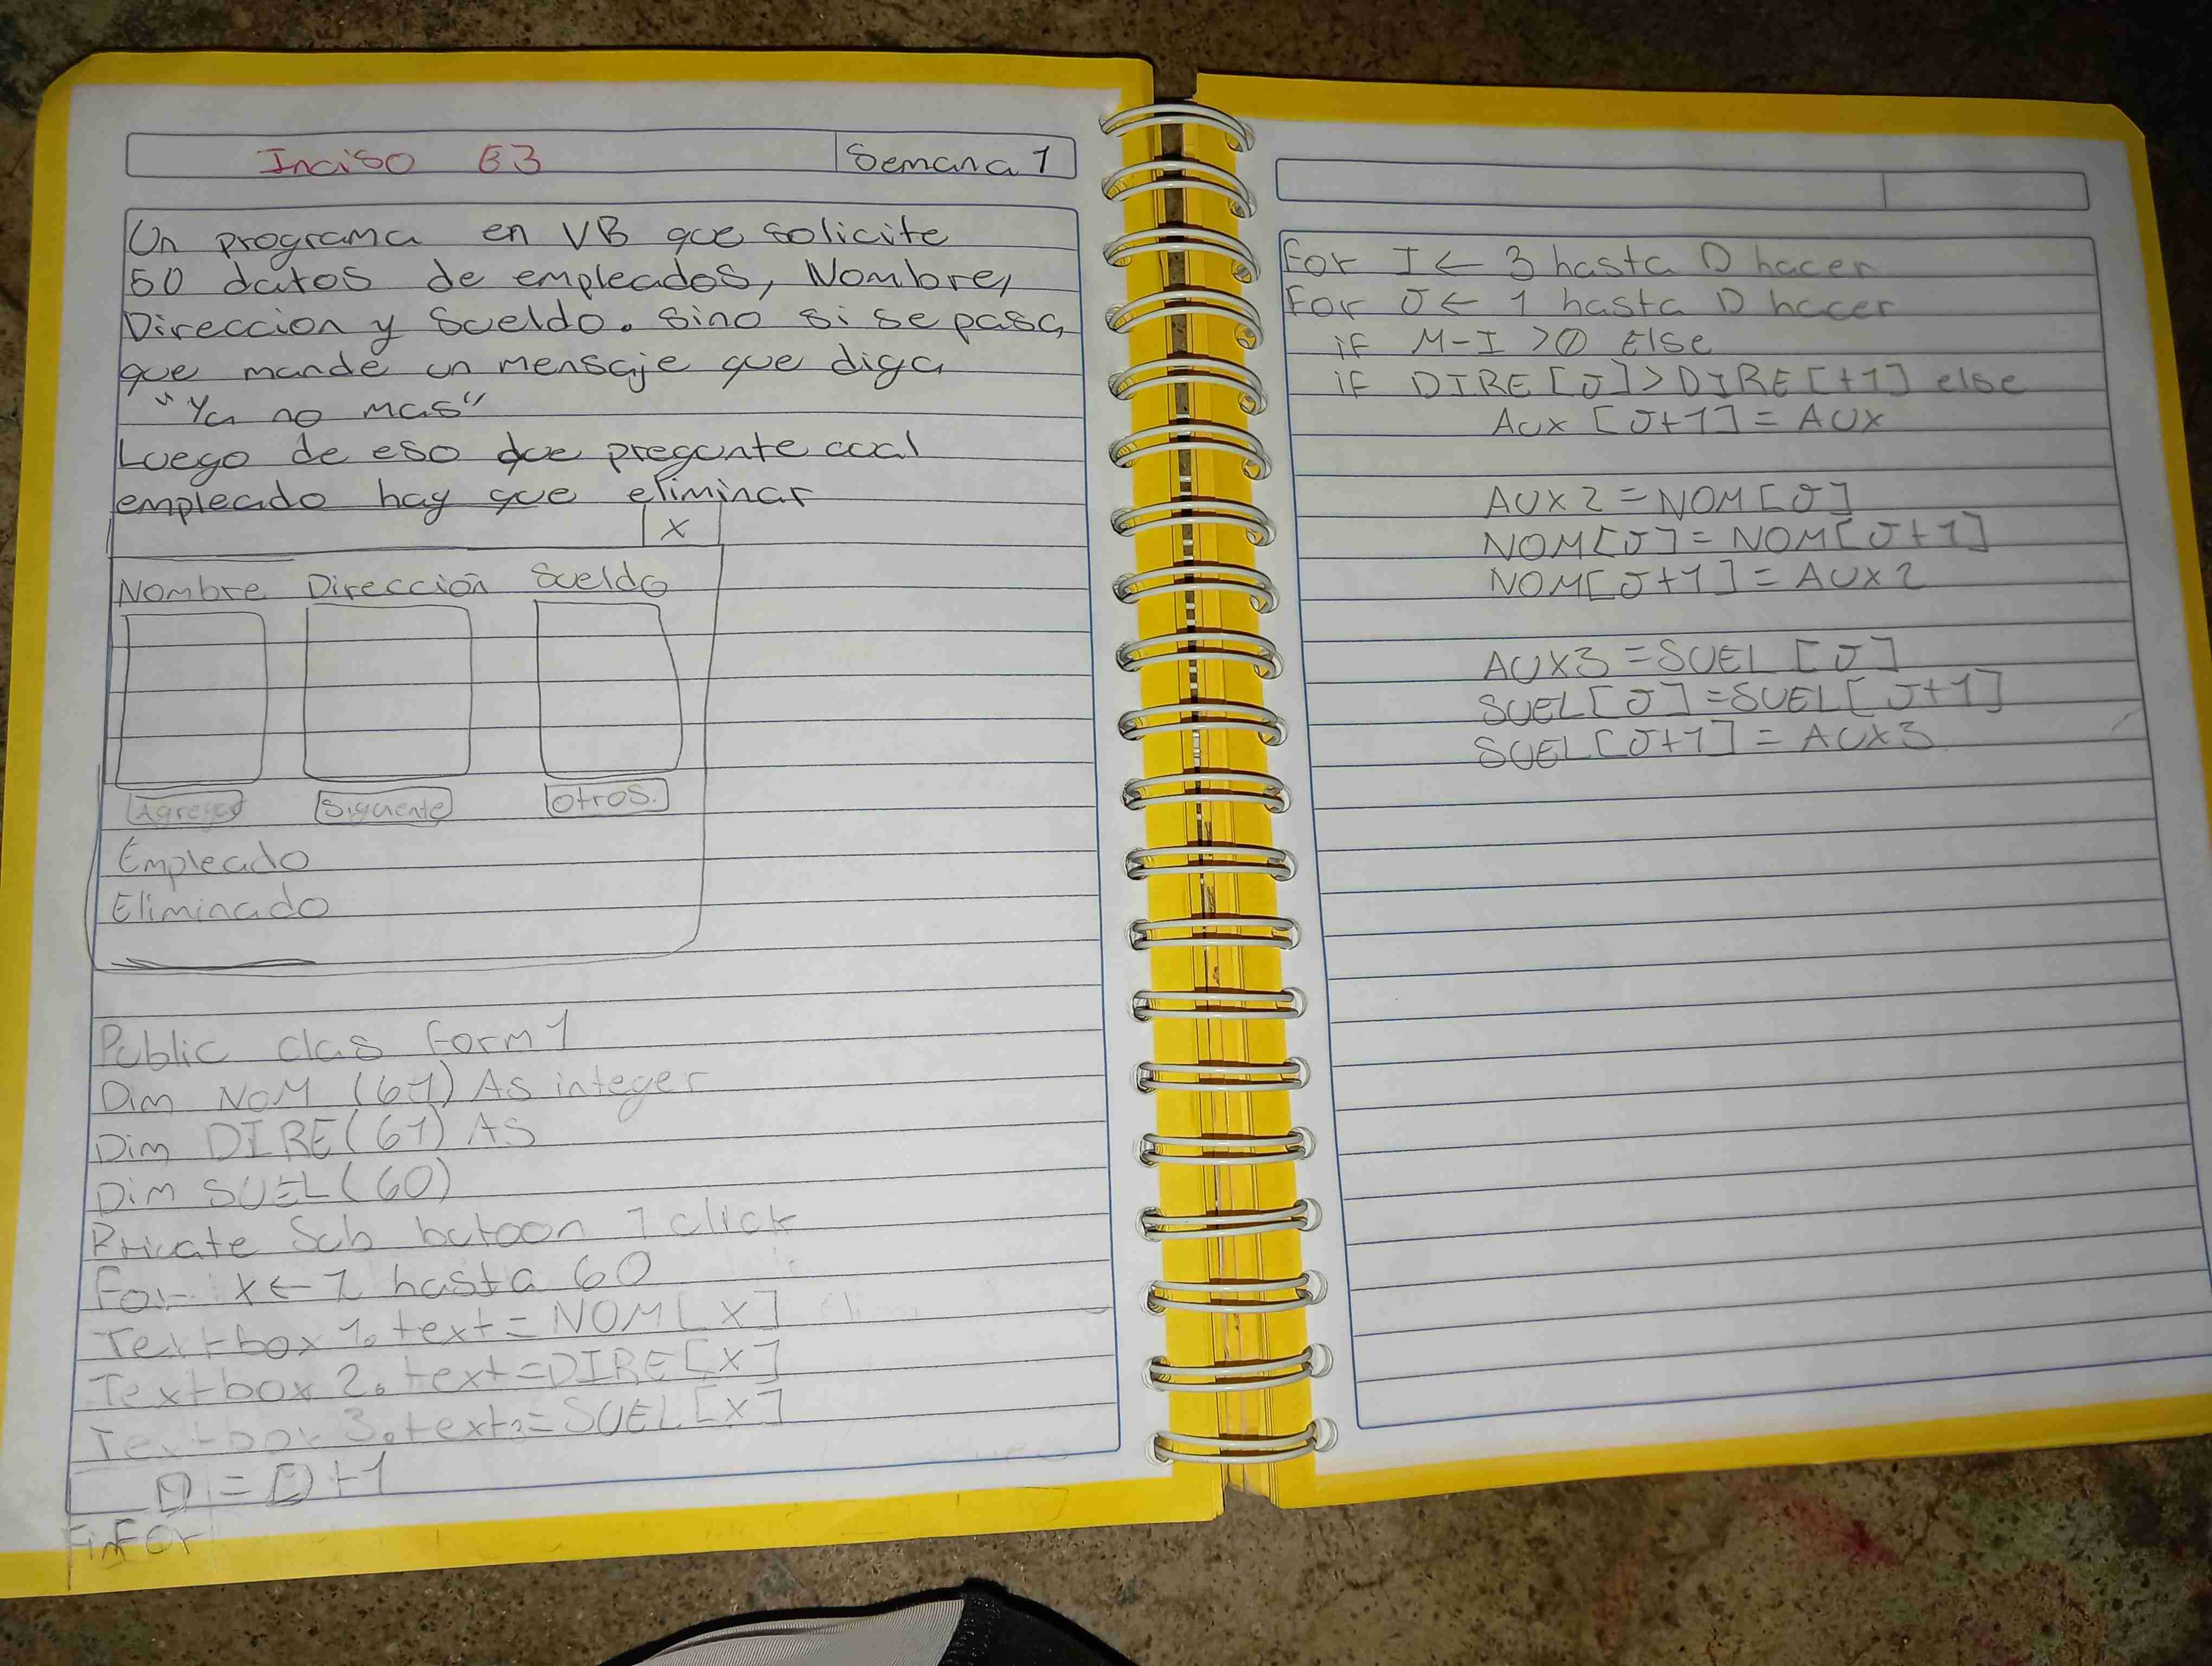 Inciso E3
Semana 1
Un programa en VB que solicite
60 datos de empleados, Nombre,
Direccion y Sueldo. sino si se pasa,
que mande un mensaje que diga
"Ya no mas"
Luego de eso que pregunte cual
empleado hay que eliminar
X
Nombre Dirección Sueldo
Agregar Siguente otros.
Empleado
Eliminado
Public clas form 1
Dim NOM (61) As integer
Dim DIRE(61) AS
Dim SUEL(60)
Private Sub butoon 1 click
For x ← 1 hasta 60
Textbox 1. text = NOM[X]
Textbox 2. text = DIRE[X]
Textbox 3. text = SUEL[X]
D = D+1
FinFor
For I ← 3 hasta D hacer
For J ← 1 hasta D hacer
if M-I >0 Else
if DIRE[J]>DIRE[+1] else
Aux [J+1] = AUX
AUX2 = NOM[J]
NOM[J] = NOM[J+1]
NOM[J+1] = AUX2
AUX3 = SUEL [J]
SUEL[J] = SUEL[J+1]
SUEL[J+1] = AUX3